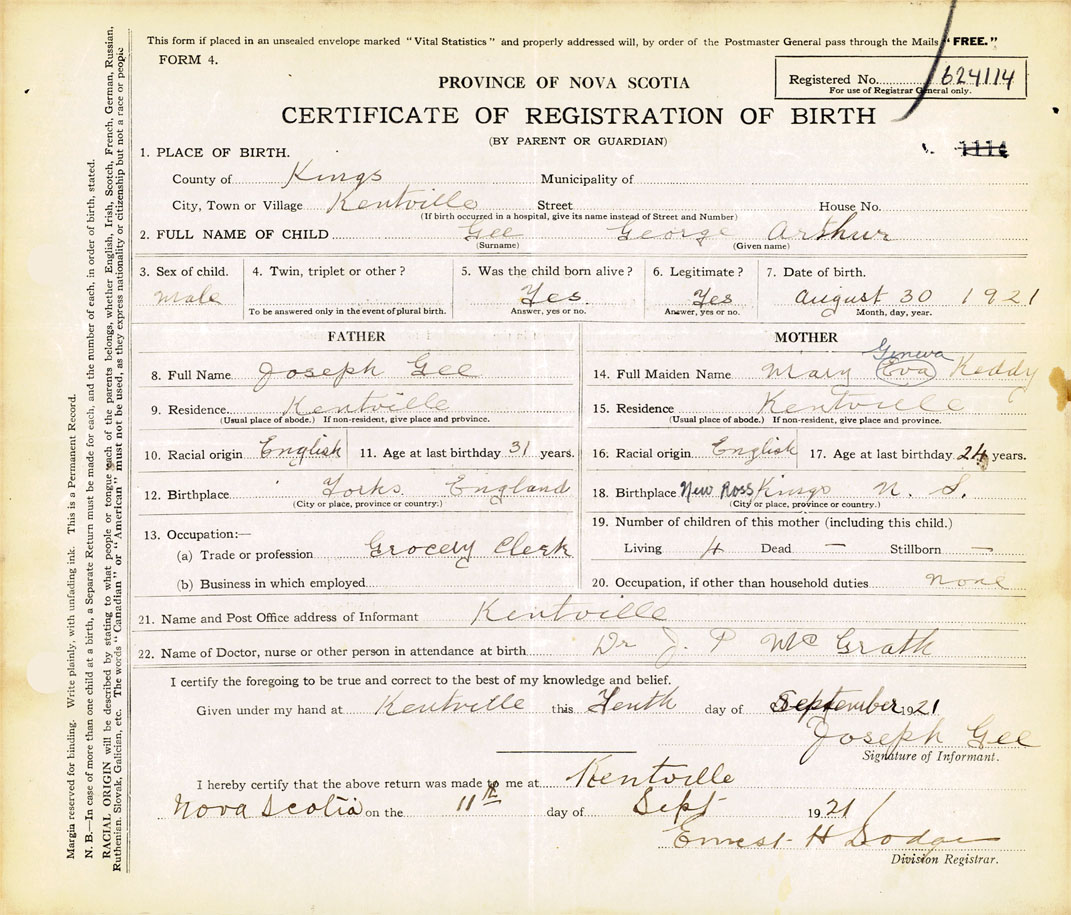 This form if placed in an unsealed envelope marked "Vital Statistics" and properly addressed will, by order of the Postmaster General pass through the Mails "FREE."
FORM 4.
PROVINCE OF NOVA SCOTIA
Registered No. 624114
For use of Registrar General only.
CERTIFICATE OF REGISTRATION OF BIRTH
(BY PARENT OR GUARDIAN)
1114
1. PLACE OF BIRTH.
County of Kings Municipality of
City, Town or Village Kentville Street House No.
(If birth occurred in a hospital, give its name instead of Street and Number)
2. FULL NAME OF CHILD Gee George Arthur
(Surname) (Given name)
3. Sex of child. 4. Twin, triplet or other? 5. Was the child born alive? 6. Legitimate? 7. Date of birth.
Male Yes. Yes August 30 1921
To be answered only in the event of plural birth. Answer, yes or no. Answer, yes or no. Month, day, year.
FATHER MOTHER
Geneva
8. Full Name Joseph Gee 14. Full Maiden Name Mary Eva Keddy
9. Residence. Kentville 15. Residence Kentville
(Usual place of abode.) If non-resident, give place and province. (Usual place of abode.) If non-resident, give place and province.
10. Racial origin English 11. Age at last birthday 31 years. 16. Racial origin English 17. Age at last birthday 24 years.
12. Birthplace Yorks. England 18. Birthplace New Ross Kings N. S.
(City or place, province or country.) (City or place, province or country.)
13. Occupation:— 19. Number of children of this mother (including this child.)
(a) Trade or profession Grocery Clerk Living 4 Dead — Stillborn —
(b) Business in which employed 20. Occupation, if other than household duties none
21. Name and Post Office address of Informant Kentville
22. Name of Doctor, nurse or other person in attendance at birth Dr J. P McGrath
I certify the foregoing to be true and correct to the best of my knowledge and belief.
Given under my hand at Kentville this Tenth day of September 1921
Joseph Gee
Signature of Informant.
I hereby certify that the above return was made to me at Kentville
Nova Scotia on the 11th day of Sept 1921
Ernest H Dodge
Division Registrar.
Margin reserved for binding. Write plainly, with unfading ink. This is a Permanent Record.
N. B.—In case of more than one child at a birth, a Separate Return must be made for each, and the number of each, in order of birth, stated.
RACIAL ORIGIN will be described by stating to what people or tongue each of the parents belongs, whether English, Irish, Scotch, French, German, Russian,
Ruthenian, Slovak, Galician, etc. The words "Canadian" or "American" must not be used, as they express nationality or citizenship but not a race or people